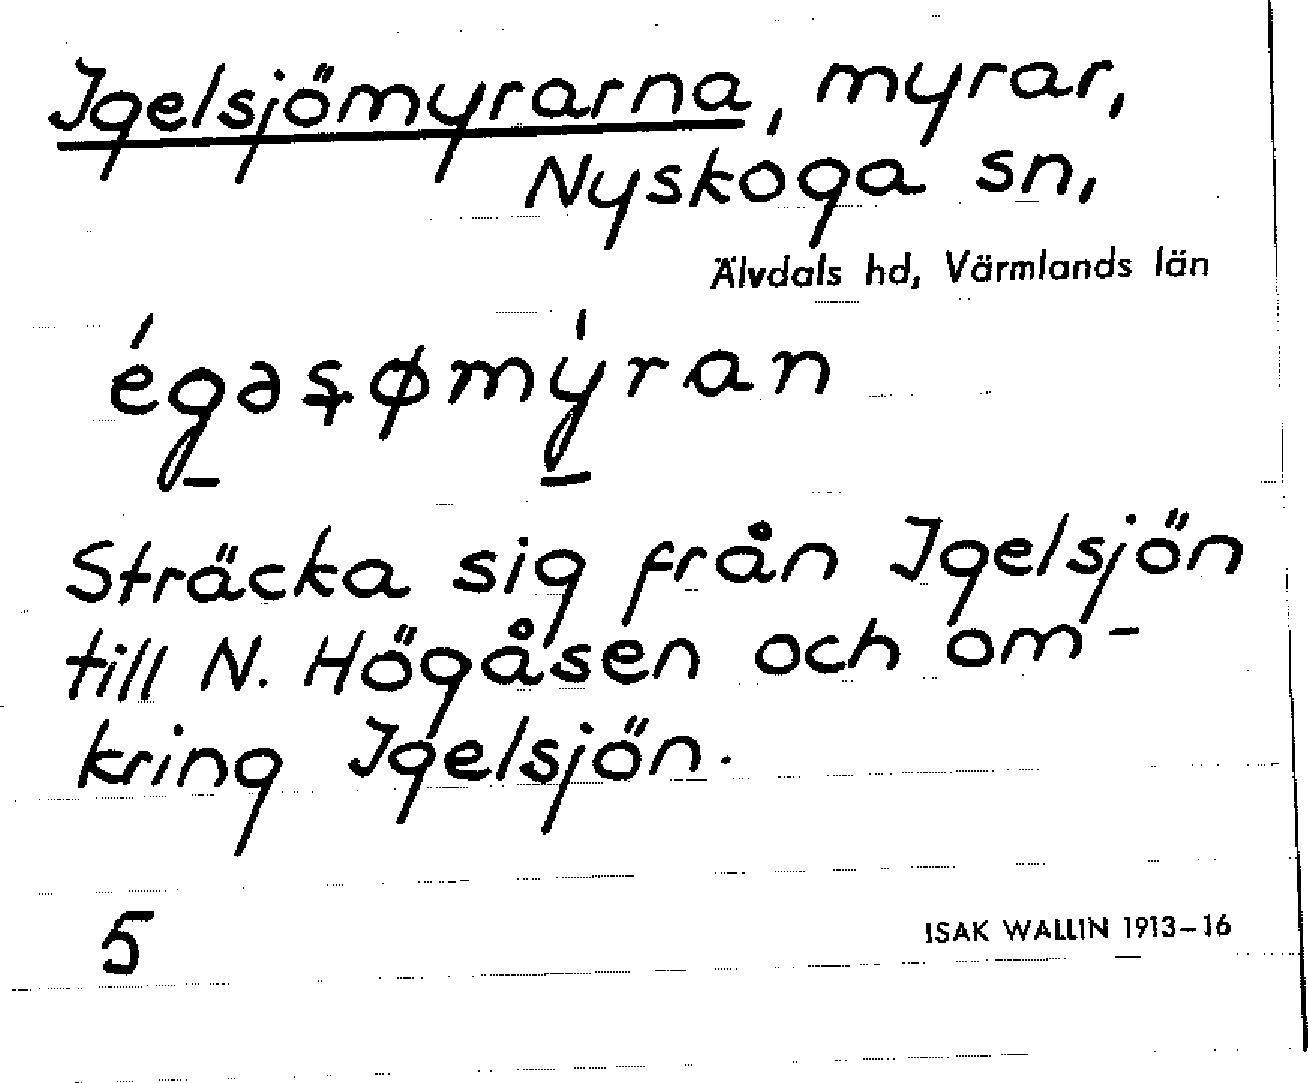 Igelsjömyrarna, myrar,
Nyskoga sn,
Älvdals hd, Värmlands län
Sträcka sig från Igelsjön
till N. Högåsen och om-
kring Igelsjön.
5
ISAK WALLIN 1913–16